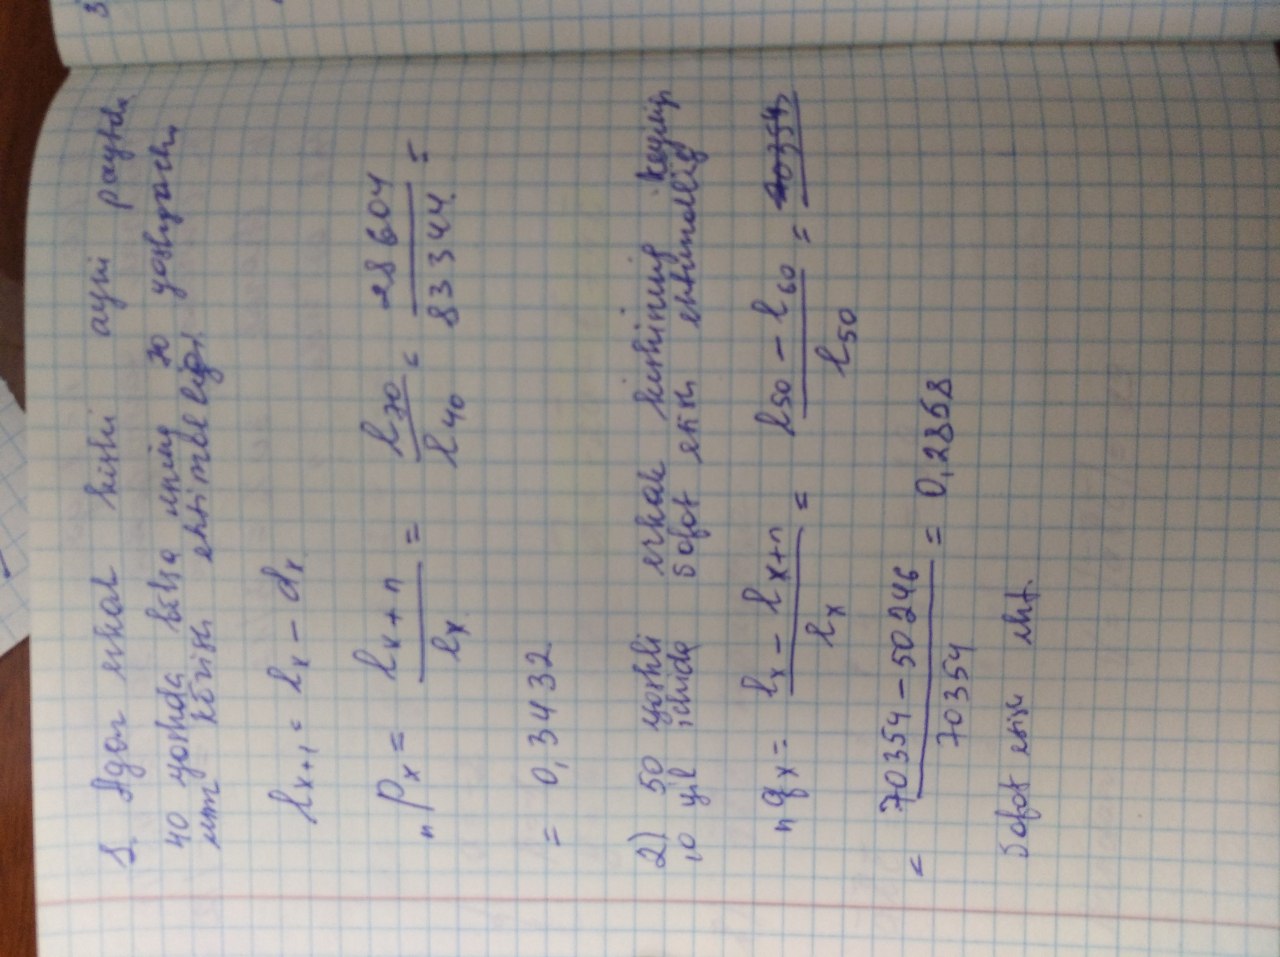 1. Agar erkak kishi ayni paytda
40 yoshda bo'lsa uning 70 yoshgacha
umr ko'rish ehtimolligi.
lx+1 = lx - dx
nPx = lx+n / lx = l70 / l40 = 28604 / 83344 =
= 0,3432
2) 50 yoshli erkak kishining keyingi
10 yil ichida vafot etish ehtimolligi
nqx = lx - lx+n / lx = l50 - l60 / l50 =
= 70354 - 50246 / 70354 = 0,2858
vafot etish eht.